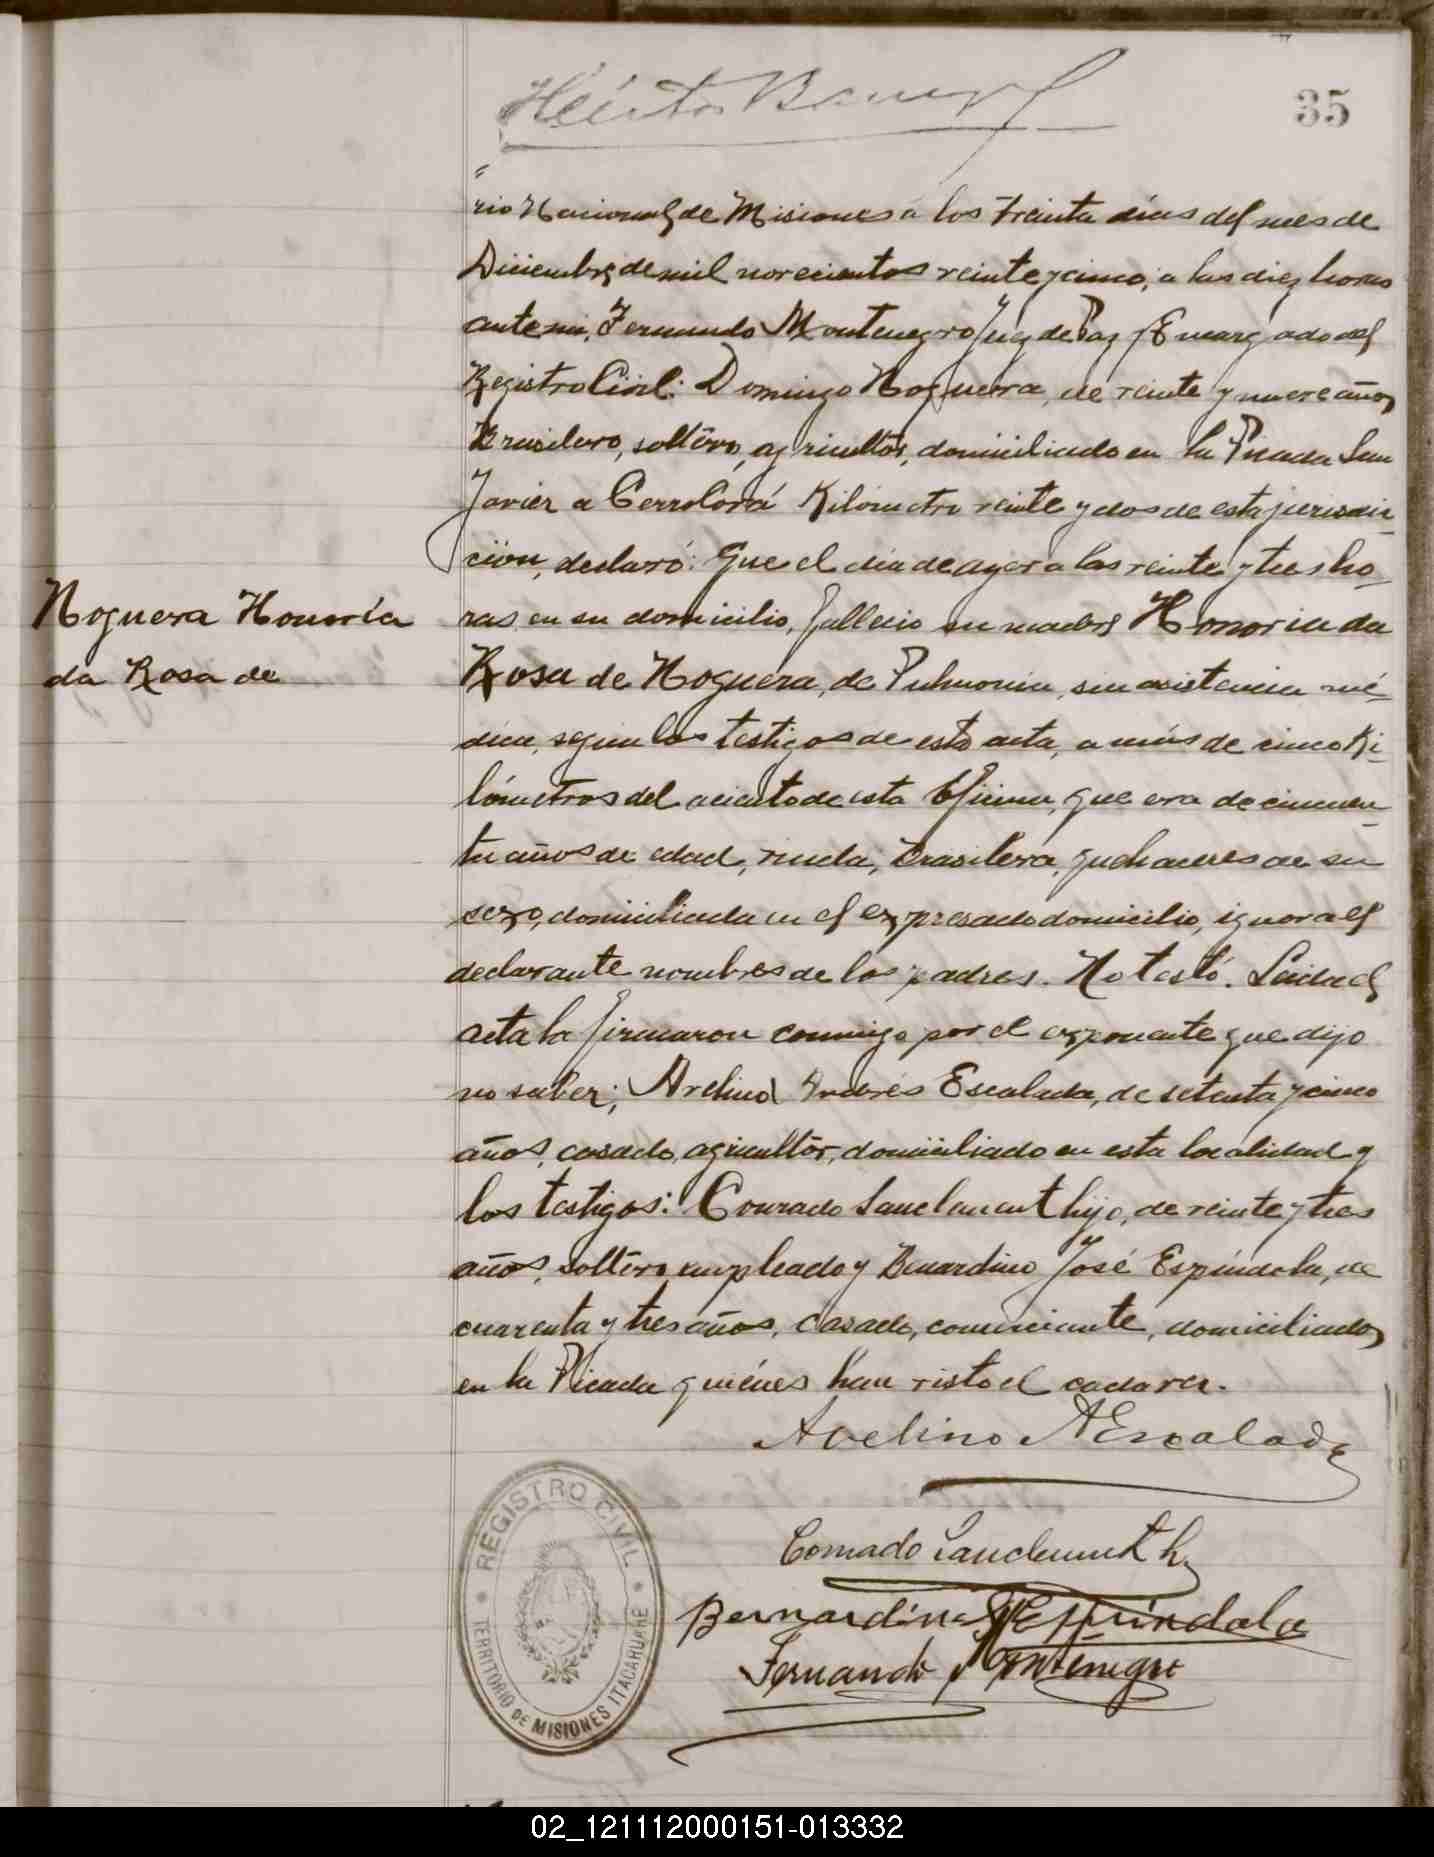 35
rio Nacional de Misiones a los treinta días del mes de
Diciembre de mil novecientos veinte y cinco, a las diez horas
ante mi, Fernando Montenegro Juez de Paz y Encargado del
Registro Civil: Domingo Noguera, de veinte y nueve años
Brasilero, soltéro, agricultór, domiciliado en la Picada San
Javier a Cerro Corá Kilómetro veinte y dos de esta jurisdic
ción, declaró: Que el dia de ayer a las veinte y tres ho-
Noguera Honoría
ras en su domicilio, fallecio su madre Honoria da
da Rosa de
Rosa de Noguera, de Pulmonia, sin asistencia mé-
dica, según los testigos de esta acta, a más de cinco Ki-
lómetros del aciento de esta Oficina, que era de cincuen-
ta años de edad, viuda, brasilera, quehaceres de su
sexo, domiciliada en el expresado domicilio, ignora el
declarante nombres de los padres. No testó. Leida el
acta la firmaron conmigo por el exponente que dijo
no saber; Avelino Andrés Escalada, de setenta y cinco
años, casado, agricultór, domiciliado en esta localidad y
los testigos: Conrado hijo, de veinte y tres
años, soltéro empleado y Benardino José Espíndola, de
cuarenta y tres años, casado, comerciante, domiciliados
en la Picada quiénes han visto el cadaver.
Avelino A Escalada
Conrado h.
Bernardino J Espíndola
Fernando Montenegro
REGISTRO CIVIL
TERRITORIO DE MISIONES ITACARUARE
02_121112000151-013332